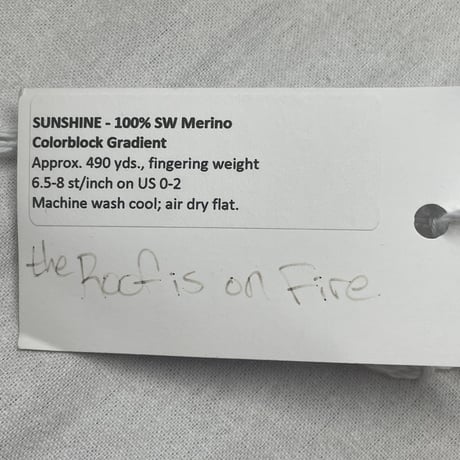 SUNSHINE - 100% SW Merino
Colorblock Gradient
Approx. 490 yds., fingering weight
6.5-8 st/inch on US 0-2
Machine wash cool; air dry flat.
the Roof is on Fire